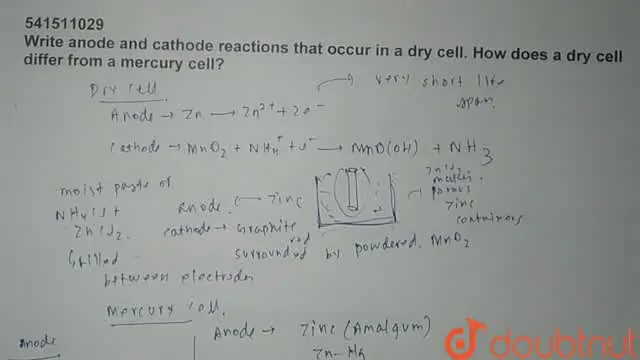 541511029
Write anode and cathode reactions that occur in a dry cell. How does a dry cell
differ from a mercury cell?
Dry cell → very short life
span.
Anode → Zn → Zn²⁺ + 2e⁻
Cathode → MnO₂ + NH₄⁺ + e⁻ → MnO(OH) + NH₃
moist paste of
NH₄Cl +
ZnCl₂.
filled
between electrodes
anode. ← Zinc
cathode → graphite
rod
surrounded by powdered MnO₂
ZnCl₂
makes
porous
zinc
containers
Mercury cell.
Anode
Anode → Zinc (Amalgum)
Zn-Hg
doubtnut